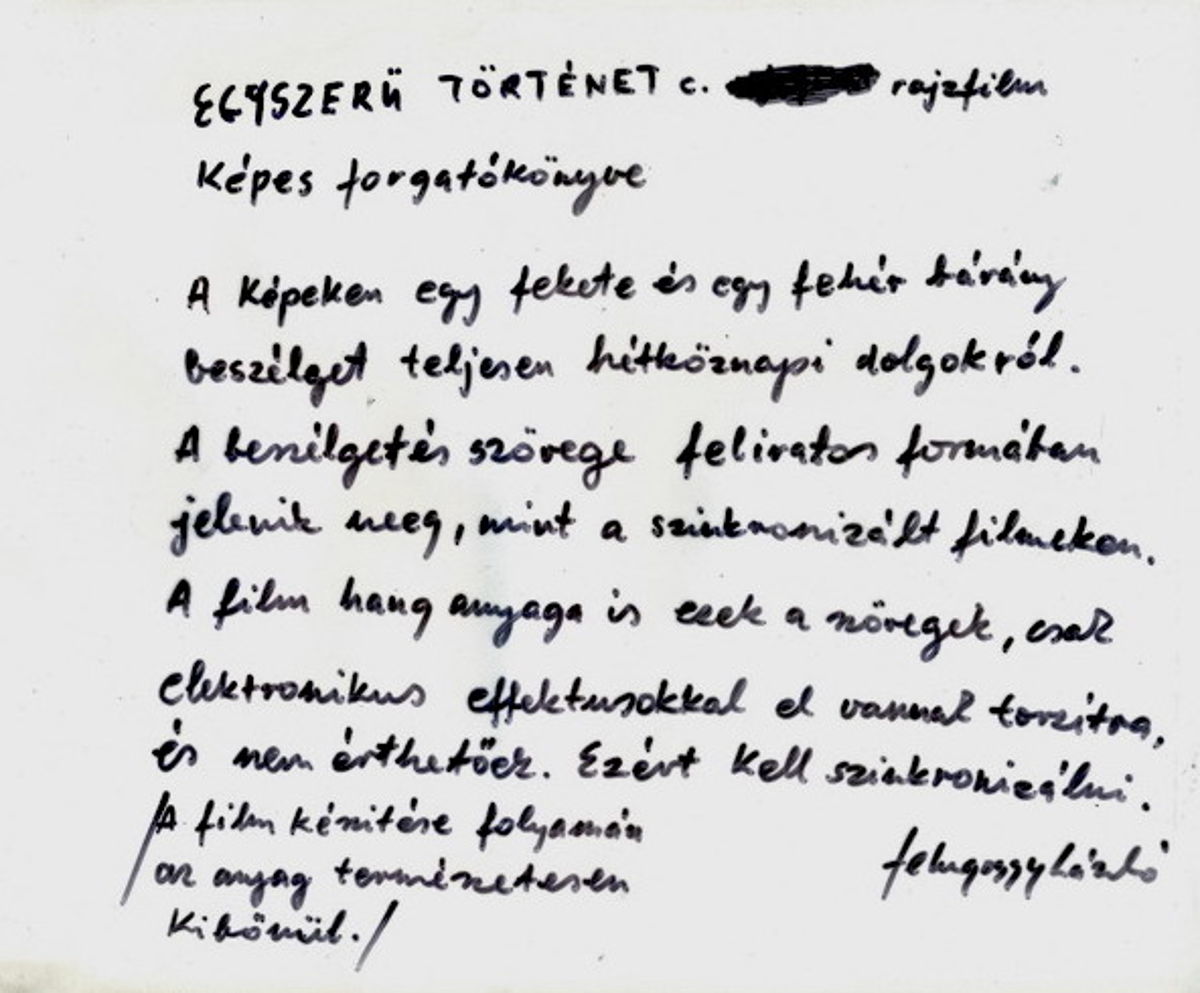 EGYSZERŰ TÖRTÉNET c. rajzfilm
Képes forgatókönyve
A Képeken egy fekete és egy fehér bárány
beszélget teljesen hétköznapi dolgokról.
A beszélgetés szövege feliratos formában
jelenik meg, mint a szinkronizált filmeken.
A film hang anyaga is ezek a szövegek, csak
elektronikus effektusokkal el vannak torzitva,
és nem érthetőek. Ezért Kell szinkronizálni.
/A film készitése folyamán
az anyag természetesen
Kibővül./
felugossylászló